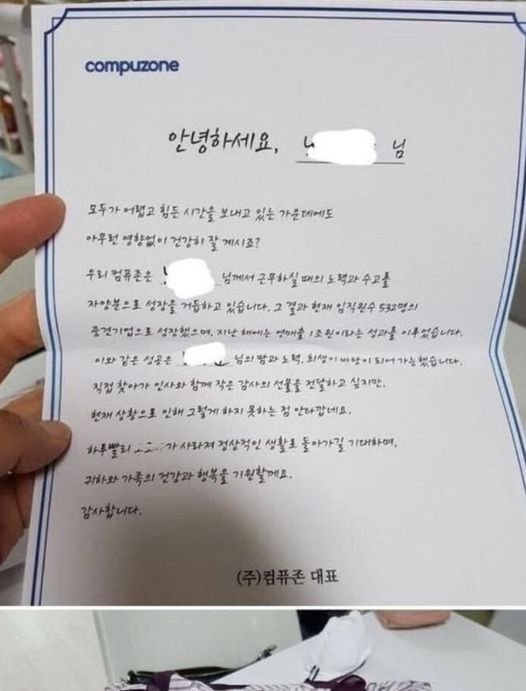 compuzone
안녕하세요, 님
모두가 어렵고 힘든 시간을 보내고 있는 가운데에도
아무런 영향없이 건강히 잘 계시죠?
우리 컴퓨존은 님께서 근무하실 때의 노력과 수고를
자양분으로 성장을 거듭하고 있습니다. 그 결과 현재 임직원수 532명의
중견기업으로 성장했으며, 지난 해에는 연매출 1조원이라는 성과를 이루었습니다.
이와 같은 성공은 님의 땀과 노력, 희생이 바탕이 되어 가능했습니다.
직접 찾아가 인사와 함께 작은 감사의 선물을 전달하고 싶지만,
현재 상황으로 인해 그렇게 하지 못하는 점 안타깝네요.
하루빨리 가 사라져 정상적인 생활로 돌아가길 기대하며,
귀하와 가족의 건강과 행복을 기원할게요.
감사합니다.
(주)컴퓨존 대표